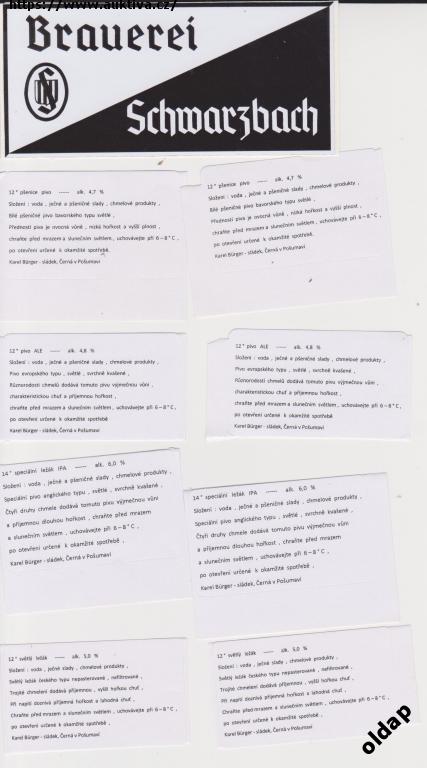 https://www.auktiva.cz/
Brauerei
Schwarzbach
12° pšenice pivo —— alk. 4,7 %
Složení : voda , ječné a pšeničné slady , chmelové produkty ,
Bílé pšeničné pivo bavorského typu světlé ,
Předností piva je ovocná vůně , nízká hořkost a vyšší plnost ,
chraňte před mrazem a slunečním světlem, uchovávejte při 6 – 8 ° C ,
po otevření určené k okamžité spotřebě.
Karel Bürger - sládek, Černá v Pošumaví
12° pšenice pivo —— alk. 4,7 %
Složení : voda , ječné a pšeničné slady , chmelové produkty ,
Bílé pšeničné pivo bavorského typu světlé ,
Předností piva je ovocná vůně , nízká hořkost a vyšší plnost ,
chraňte před mrazem a slunečním světlem, uchovávejte při 6 – 8 ° C ,
po otevření určené k okamžité spotřebě.
Karel Bürger - sládek, Černá v Pošumaví
12° pivo ALE —— alk. 4,8 %
Složení : voda , ječné a pšeničné slady , chmelové produkty ,
Pivo evropského typu , světlé , svrchně kvašené ,
Různorodostí chmelů dodává tomuto pivu výjmečnou vůni ,
charakteristickou chuť a příjemnou hořkost ,
chraňte před mrazem a slunečním světlem , uchovávejte při 6 – 8 ° C ,
po otevření určené k okamžité spotřebě
Karel Bürger - sládek, Černá v Pošumaví
12° pivo ALE —— alk. 4,8 %
Složení : voda , ječné a pšeničné slady , chmelové produkty ,
Pivo evropského typu , světlé , svrchně kvašené ,
Různorodostí chmelů dodává tomuto pivu výjmečnou vůni ,
charakteristickou chuť a příjemnou hořkost ,
chraňte před mrazem a slunečním světlem , uchovávejte při 6 – 8 ° C ,
po otevření určené k okamžité spotřebě
Karel Bürger - sládek, Černá v Pošumaví
14° speciální ležák IPA —— alk. 6,0 %
Složení : voda , ječné a pšeničné slady , chmelové produkty ,
Speciální pivo anglického typu , světlé , svrchně kvašené ,
Čtyři druhy chmele dodává tomuto pivu výjmečnou vůni
a příjemnou dlouhou hořkost , chraňte před mrazem
a slunečním světlem , uchovávejte při 6 – 8 ° C ,
po otevření určené k okamžité spotřebě ,
Karel Bürger - sládek, Černá v Pošumaví
14° speciální ležák IPA —— alk. 6,0 %
Složení : voda , ječné a pšeničné slady , chmelové produkty ,
Speciální pivo anglického typu , světlé , svrchně kvašené ,
Čtyři druhy chmele dodává tomuto pivu výjmečnou vůni
a příjemnou dlouhou hořkost , chraňte před mrazem
a slunečním světlem , uchovávejte při 6 – 8 ° C ,
po otevření určené k okamžité spotřebě ,
Karel Bürger - sládek, Černá v Pošumaví
12° světlý ležák —— alk. 5,0 %
Složení : voda , ječné slady , chmelové produkty ,
Světlý ležák českého typu nepasterované , nefiltrované ,
Trojité chmelení dodává příjemnou , vyšší hořkou chuť ,
Při napití doznívá příjemná hořkost a lahodná chuť ,
Chraňte před mrazem a slunečním světlem, uchovávejte při 6 – 8 ° C ,
po otevření určené k okamžité spotřebě ,
Karel Bürger - sládek, Černá v Pošumaví
12° světlý ležák —— alk. 5,0 %
Složení : voda , ječné slady , chmelové produkty ,
Světlý ležák českého typu nepasterované , nefiltrované ,
Trojité chmelení dodává příjemnou , vyšší hořkou chuť ,
Při napití doznívá příjemná hořkost a lahodná chuť ,
Chraňte před mrazem a slunečním světlem, uchovávejte při 6 – 8 ° C ,
po otevření určené k okamžité spotřebě ,
Karel Bürger - sládek, Černá v Pošumaví
oldap